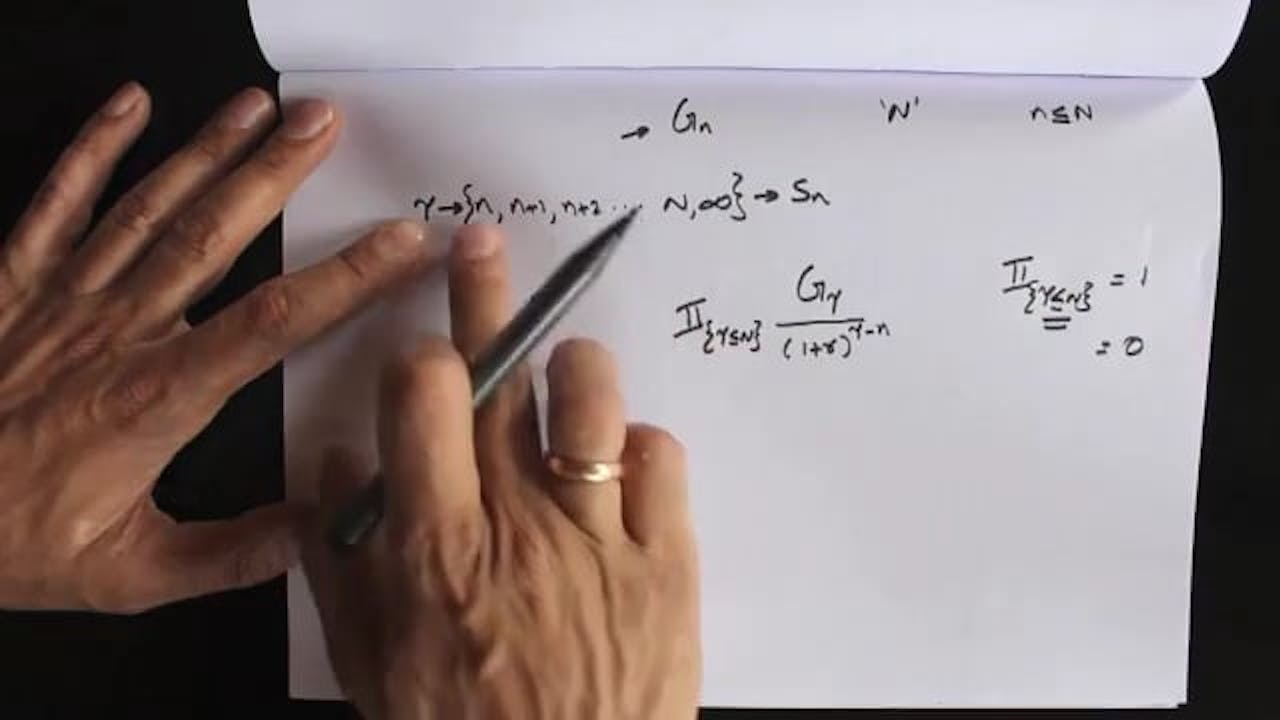 → Gn 'N' n≤N
γ→{n, n+1, n+2 ... N,∞} → Sn
𝕀{γ≤N} Gγ/(1+r)^γ-n
𝕀{γ≤N} = 1
= 0